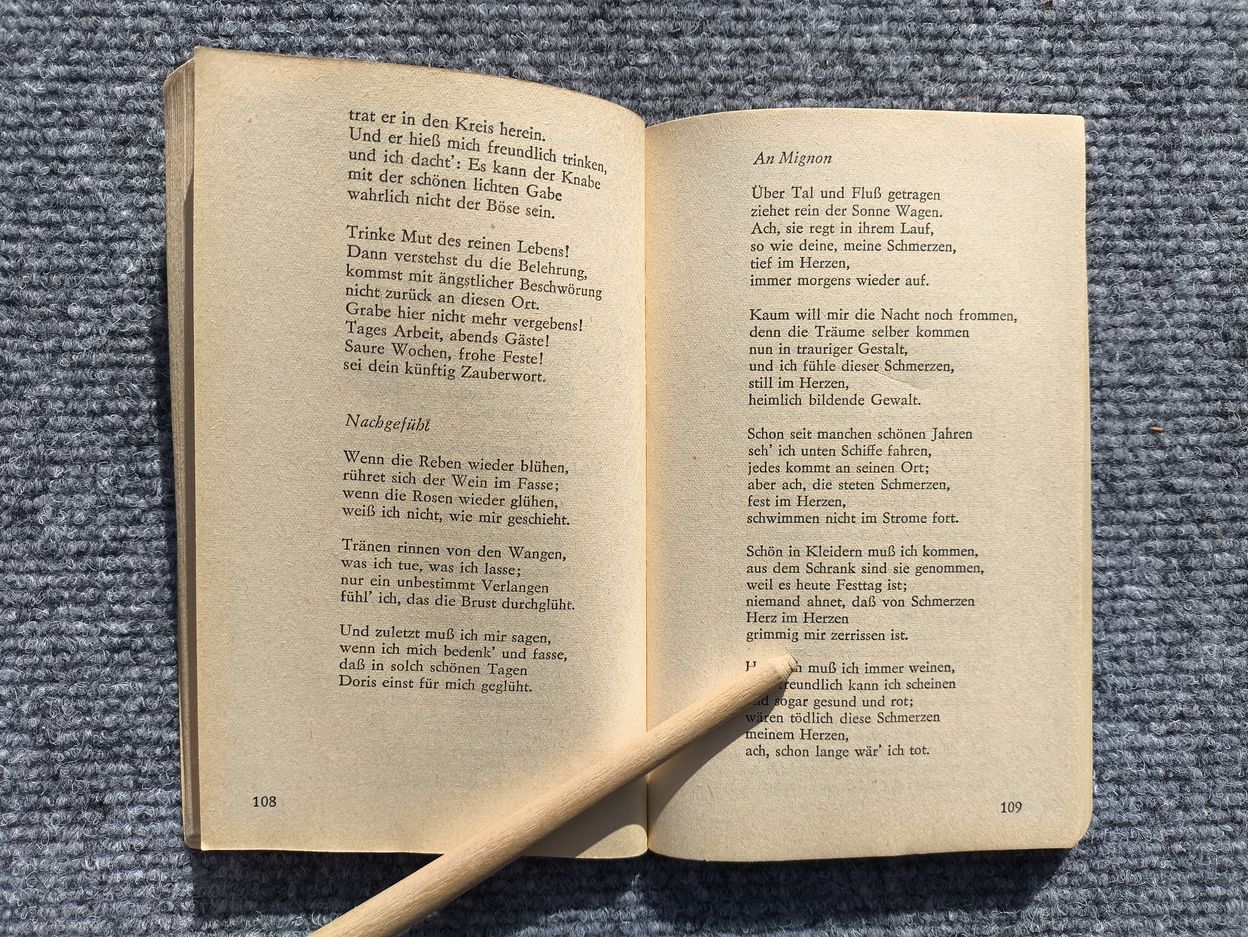 trat er in den Kreis herein.
Und er hieß mich freundlich trinken,
und ich dacht': Es kann der Knabe
mit der schönen lichten Gabe
wahrlich nicht der Böse sein.
Trinke Mut des reinen Lebens!
Dann verstehst du die Belehrung,
kommst mit ängstlicher Beschwörung
nicht zurück an diesen Ort.
Grabe hier nicht mehr vergebens!
Tages Arbeit, abends Gäste!
Saure Wochen, frohe Feste!
sei dein künftig Zauberwort.
Nachgefühl
Wenn die Reben wieder blühen,
rühret sich der Wein im Fasse;
wenn die Rosen wieder glühen,
weiß ich nicht, wie mir geschieht.
Tränen rinnen von den Wangen,
was ich tue, was ich lasse;
nur ein unbestimmt Verlangen
fühl' ich, das die Brust durchglüht.
Und zuletzt muß ich mir sagen,
wenn ich mich bedenk' und fasse,
daß in solch schönen Tagen
Doris einst für mich geglüht.
108
An Mignon
Über Tal und Fluß getragen
ziehet rein der Sonne Wagen.
Ach, sie regt in ihrem Lauf,
so wie deine, meine Schmerzen,
tief im Herzen,
immer morgens wieder auf.
Kaum will mir die Nacht noch frommen,
denn die Träume selber kommen
nun in trauriger Gestalt,
und ich fühle dieser Schmerzen,
still im Herzen,
heimlich bildende Gewalt.
Schon seit manchen schönen Jahren
seh' ich unten Schiffe fahren,
jedes kommt an seinen Ort;
aber ach, die steten Schmerzen,
fest im Herzen,
schwimmen nicht im Strome fort.
Schön in Kleidern muß ich kommen,
aus dem Schrank sind sie genommen,
weil es heute Festtag ist;
niemand ahnet, daß von Schmerzen
Herz im Herzen
grimmig mir zerrissen ist.
muß ich immer weinen,
freundlich kann ich scheinen
und sogar gesund und rot;
wären tödlich diese Schmerzen
meinem Herzen,
ach, schon lange wär' ich tot.
109